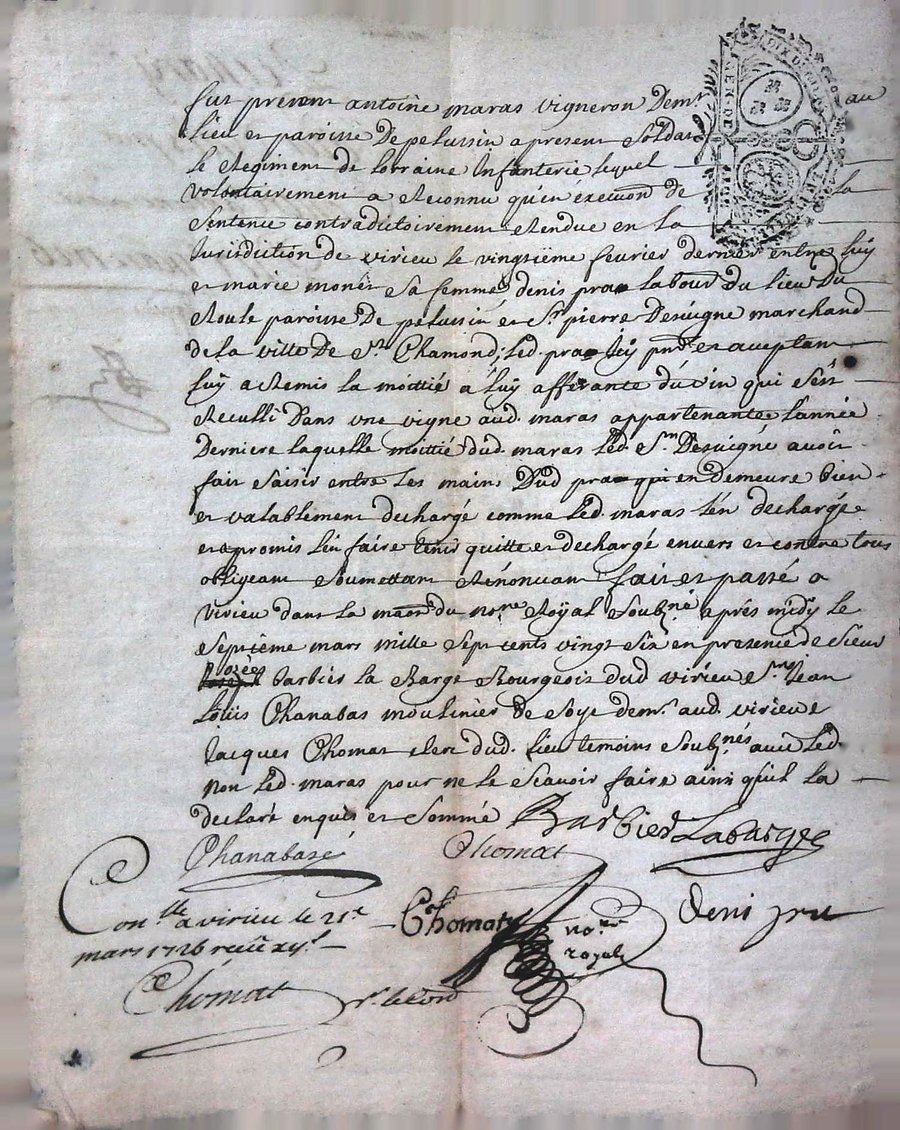 fut present antoine maras vigneron demt au
lieu et paroisse de pelussin a present soldat
le Regiment de lorraine Infanterie lequel
volontairement a Reconnu qu'en execuon de la
sentence contradictoirement Rendue en la
Jurisdiction de virieu le vingtiéme fevrier dernier entre luy
et marie monet sa femme denis pra labour du lieu du
Roule paroisse de pelussin et Sr pierre Desvigne marchand
de la ville de St Chamond, led. pra Icy pnt et aceptant
luy a Remis la moittié a luy afferante du vin qui s'est
Reculli dans une vigne aud. maras appartenante l'année
derniere laquelle moittié dud. maras led. Sr Desvigne avoit
fait saisir entre les mains dud pra qui en demeure bien
et valablement dechargé comme led. maras l'en decharge
et a promis l'en faire tenir quitte et dechargé envers et contre tous
obligeant soumettant Renonceant fait et passé a
virieu dans la maon du nore Royal soubné apres midy le
septiéme mars mille sept cents vingt six en presence de sieur
barbier la Barge Bourgeois dud virieu Sr Jean
Louis Chanabas moulinier de soye demt aud. virieu et
Jacques Thomas clerc dud. lieu temoins soubnés avec led.
non led. maras pour ne le scavoir faire ainsi qu'il la
declaré enquis et sommé Barbier Labarge
Chanabasé Chomat
Conlle a virieu le 21e Chomat nore royal Deni pra
mars 1726 receu
Chomat